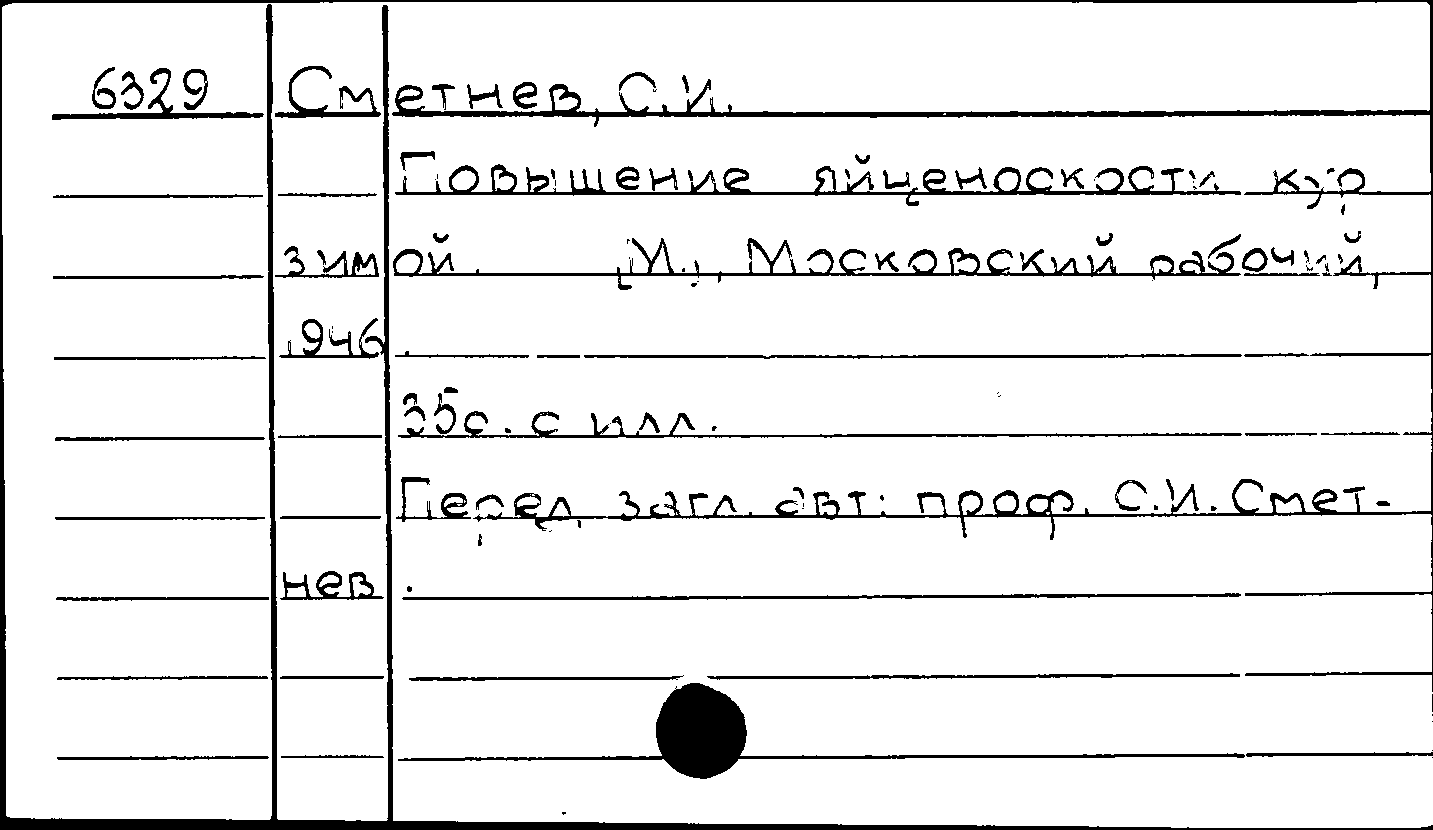 6329 Сметнев, С.И.
Повышение яйценоскости кур
зимой. [М.], Московский рабочий,
1946.
35с. с илл.
Перед загл. авт: проф. С.И. Смет-
нев.